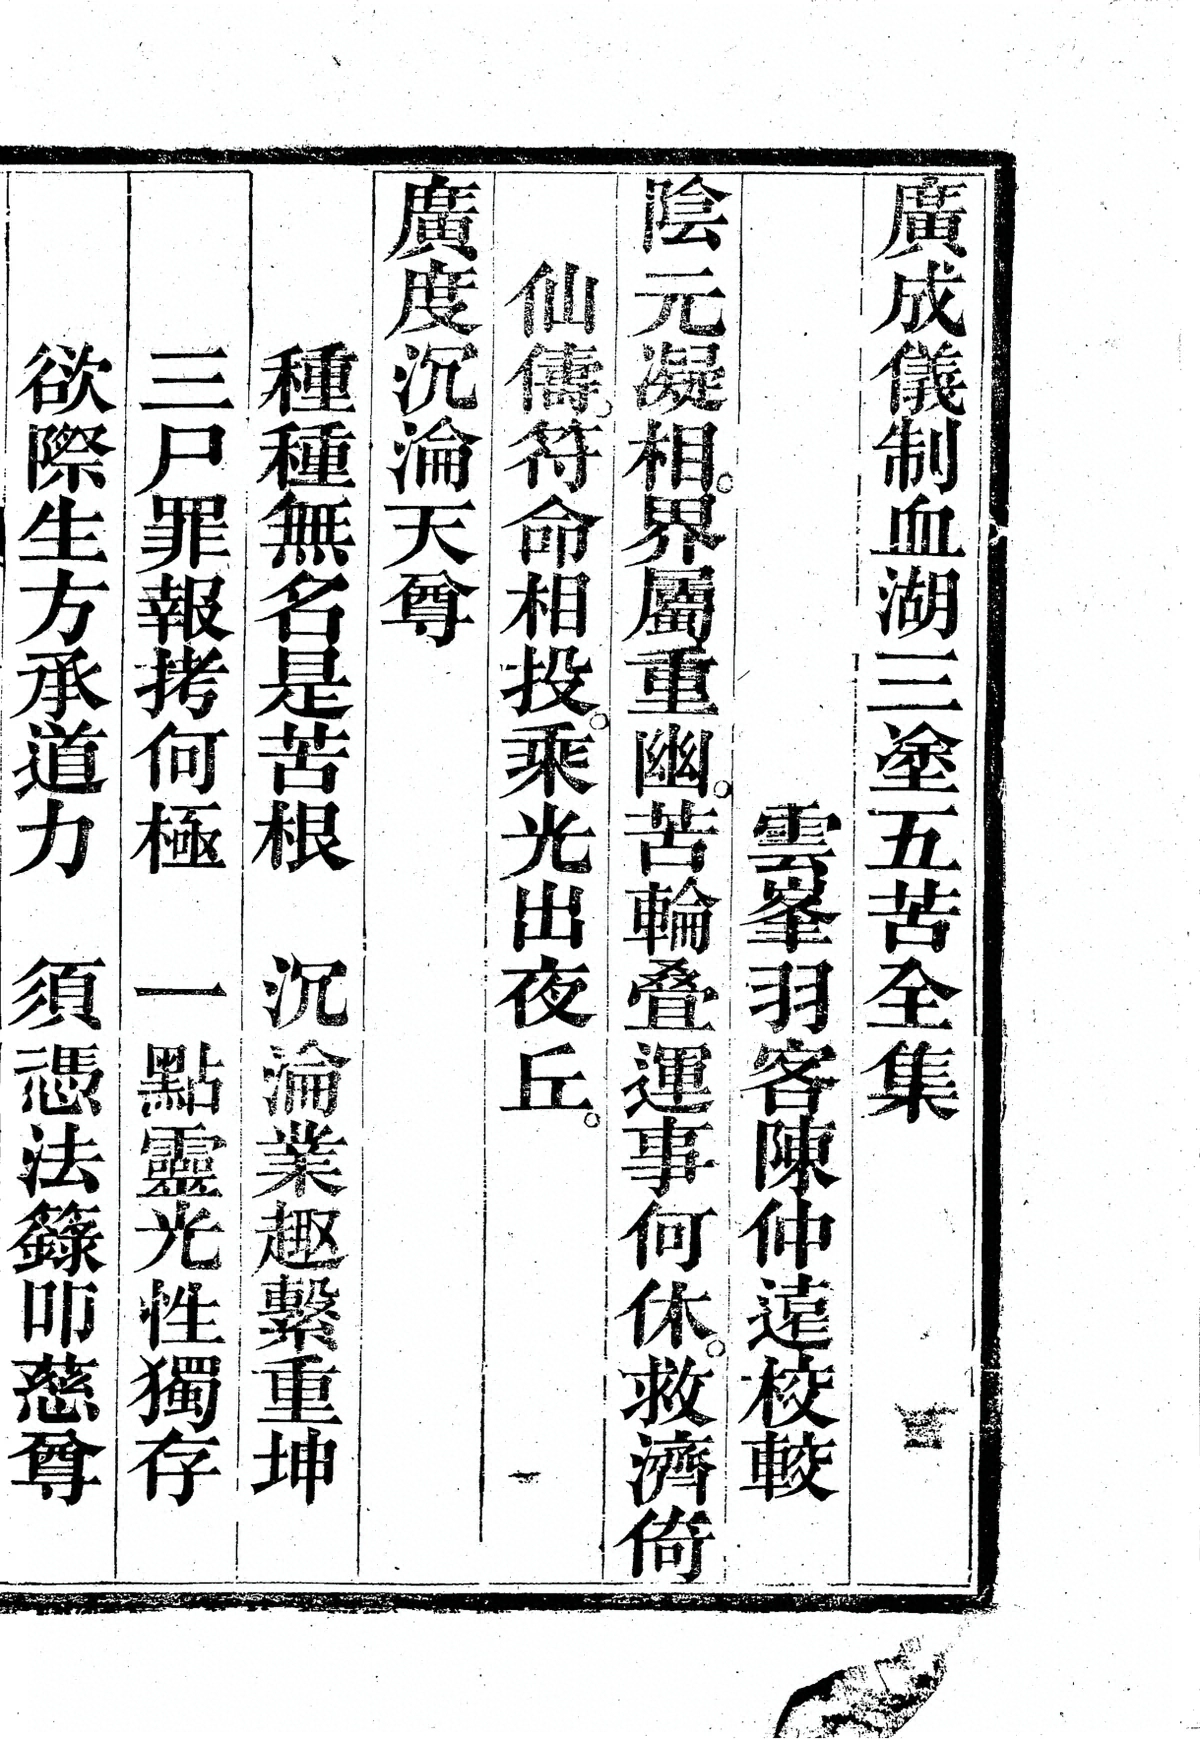 廣成儀制血湖三塗五苦全集
雲峯羽客陳仲遠校輍
陰元凝相。界屬重幽。苦輪叠運事何休。救濟倚
仙儔。符命相投。乘光出夜丘。
廣度沉淪天尊
種種無名是苦根　沉淪業趣繫重坤
三尸罪報拷何極　一點靈光性獨存
欲際生方承道力　須憑法籙叩慈尊